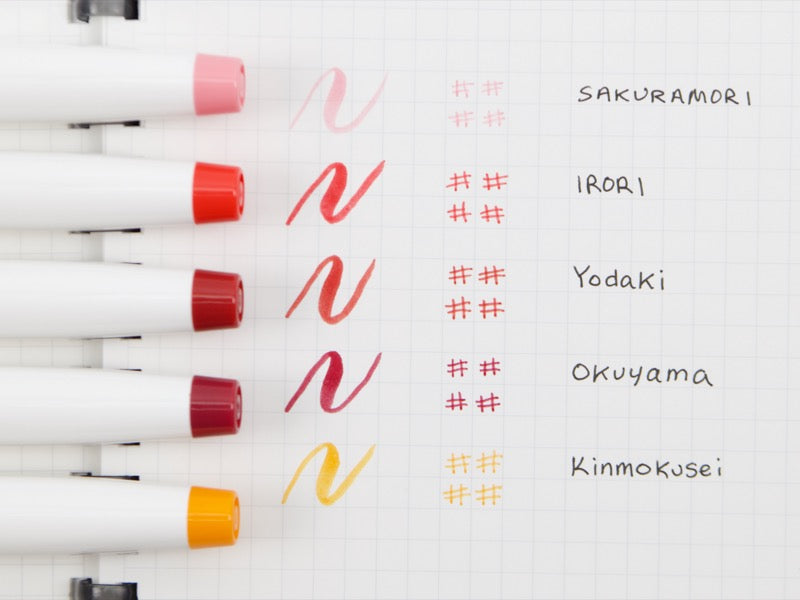 ## ## SAKURAMORI
## ##
## ## IRORI
## ##
## ## Yodaki
## ##
## ## Okuyama
## ##
## ## Kinmokusei
## ##